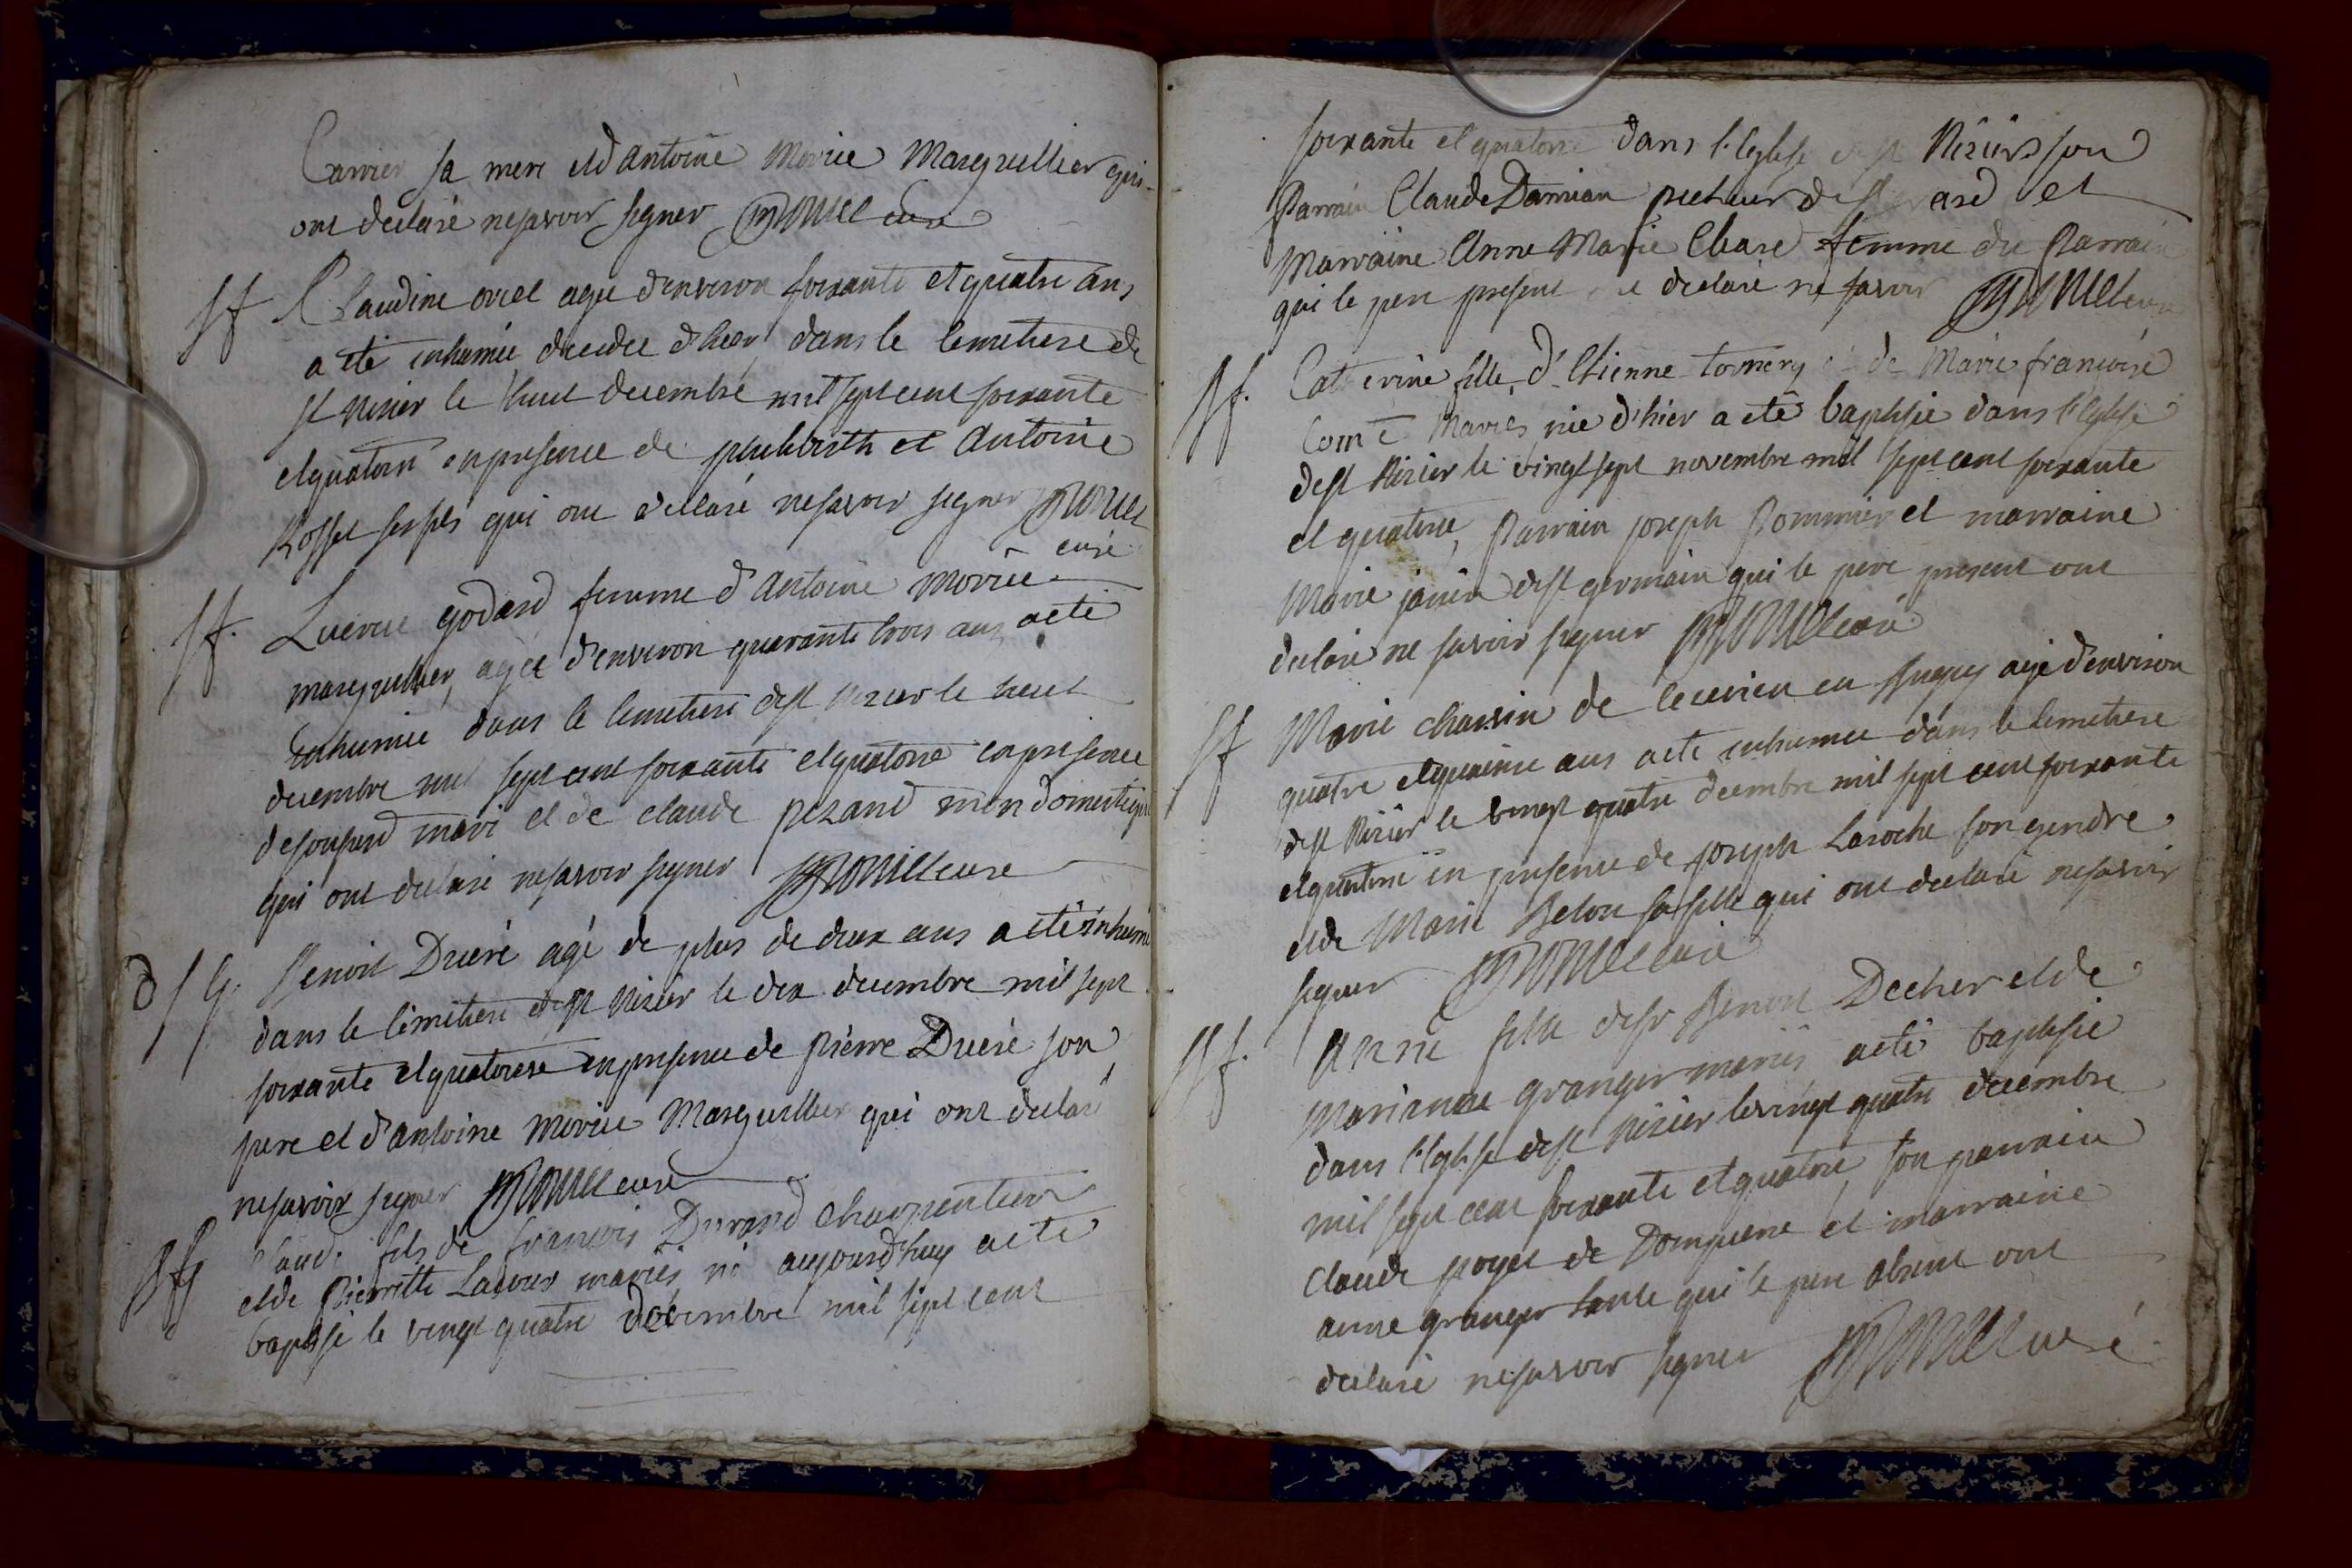 Carrier sa mere et d'antoine Morice Marguillier qui
ont declaré ne savoir signer curé
sf Claudine agée d'environ soixante et quatre ans
a été inhumée d'hier dans le Cemetiere de
st nizier le huit decembre mil sept cent soixante
et quatorze en presence de philibert et Antoine
Rosset ses fils qui ont declaré ne savoir signer
curé
sf. Lucrece godard femme d'Antoine Morice
marguillier, agée d'environ quarante trois ans a eté
inhumée dans le Cemetiere de st nizier le huit
decembre mil sept cent soixante et quatorze en presence
de son mari et de claude pezand mon domestique
qui ont declaré ne savoir signer curé
d s g. Benoit Dueré agé de plus de deux ans a eté inhumé
dans le Cemetiere de st Nizier le dix decembre mil sept
soixante et quatorze en presence de Pierre Dueré son
pere et d'antoine Morice Marguillier qui ont declaré
ne savoir signer curé
Claude fils de françois Durand charpentier
et de Pierrette Ladoux mariés né aujourd'huy a eté
baptisé le vingt quatre decembre mil sept cent
soixante et quatorze dans l'Eglise de st Nizier son
Parrain Claude Damian pecheur de st et
Marraine Anne Marie Chard femme du Parrain
qui le pere present declaré ne savoir
sf. Catherine fille d'Etienne tornery de Marie françoise
Comte Mariés née d'hier a eté baptisée dans l'Eglise
de st Nizier le vingt sept novembre mil sept cent soixante
et quatorze, Parrain joseph Pommier et marraine
Marie janin de st germain qui le pere present ont
declaré ne savoir signer curé
sf Marie chassin de en Bugey agée d'environ
quatre et quinze ans a eté inhumée dans le Cemetiere
de st Nizier le vingt quatre decembre mil sept cent soixante
et quatorze en presence de joseph Laroche son gendre
et de Marie Belon sa fille qui ont declaré ne savoir
signer curé
sf. Anne fille de sr Benoit Decher et de
Marianne granger mariés a eté baptisée
dans l'Eglise de st Nizier le vingt quatre decembre
mil sept cent soixante et quatorze, son parrain
Claude poyet de Dompierre et marraine
anne granger tante qui le pere absent ont
declaré ne savoir signer curé